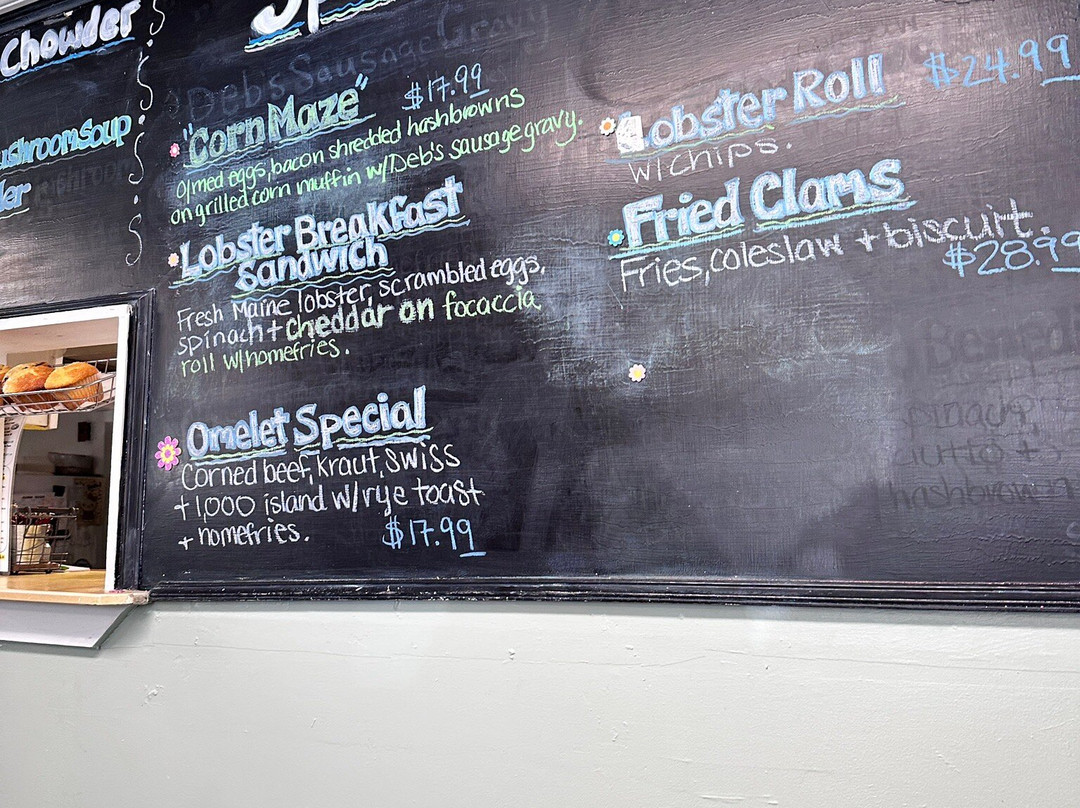 Chowder
Soup
Deb's Sausage Gravy
"Corn Maze" $17.99
O/med eggs, bacon shredded hashbrowns
on grilled corn muffin w/Deb's sausage gravy.
Lobster Breakfast
Sandwich
Fresh Maine lobster, scrambled eggs,
spinach + cheddar on focaccia
roll w/homefries.
Omelet Special
Corned beef, kraut, swiss
+ 1,000 island w/rye toast
+ homefries. $17.99
Lobster Roll $24.99
w/chips.
Fried Clams
Fries, coleslaw + biscuit.
$28.99
spinach,
hashbrown